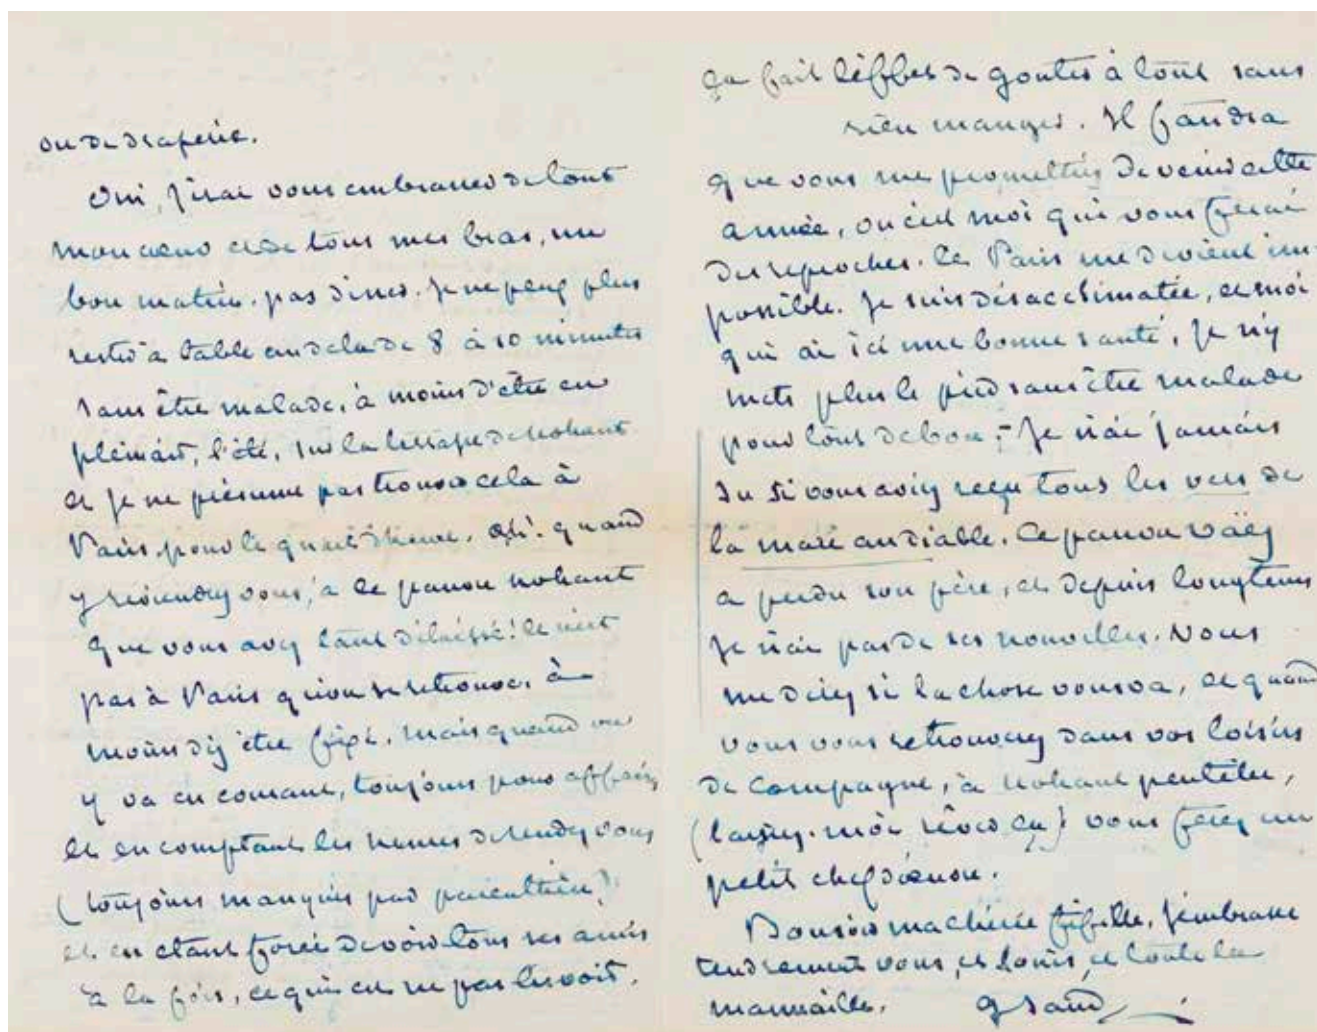 ou de draperie.
Oui, j'irai vous embrasser de tout
mon cœur et de tous mes bras, un
bon matin. pas diner. Je ne peux plus
rester à table au delà de 8 à 10 minutes
sans être malade, à moins d'être en
plein air, l'été, sur la terrasse de Nohant
et je ne présume pas trouver cela à
Paris, pour le quart d'heure. Ah! quand
y reviendrez vous, à ce pauvre Nohant
que vous avez tant délaissé! Ce n'est
pas à Paris qu'on se retrouve, à
moins d'y être fixé. Mais quand on
y va en courant, toujours pour affaires,
et en comptant les heures de rendez vous
(toujours manqués par
et en étant forcée de voir tous ses amis
à la fois, ce qui est ne pas les voir.
Ça fait l'effet de gouter à tout sans
rien manger. Il faudra
que vous me promettiez de venir cette
année, ou c'est moi qui vous ferai
des reproches. Ce Paris me devient im-
possible. Je suis désacclimatée, et moi
qui ai ici une bonne santé, je n'y
mets plus le pied sans être malade
pour tout de bon; - Je n'ai jamais
su si vous aviez reçu tous les vers de
la mare au diable. Ce pauvre Vaëz
a perdu son père, et depuis longtems
je n'ai pas de ses nouvelles. Vous
me direz si la chose vous va, et quand
vous vous retrouverez dans vos loisirs
de campagne, à Nohant peut être,
(laissez-moi rêver ça) vous ferez un
petit chef d'œuvre.
Bonsoir ma chérie fifille, j'embrasse
tendrement vous, et Louis, et toute la
marmaille. G Sand